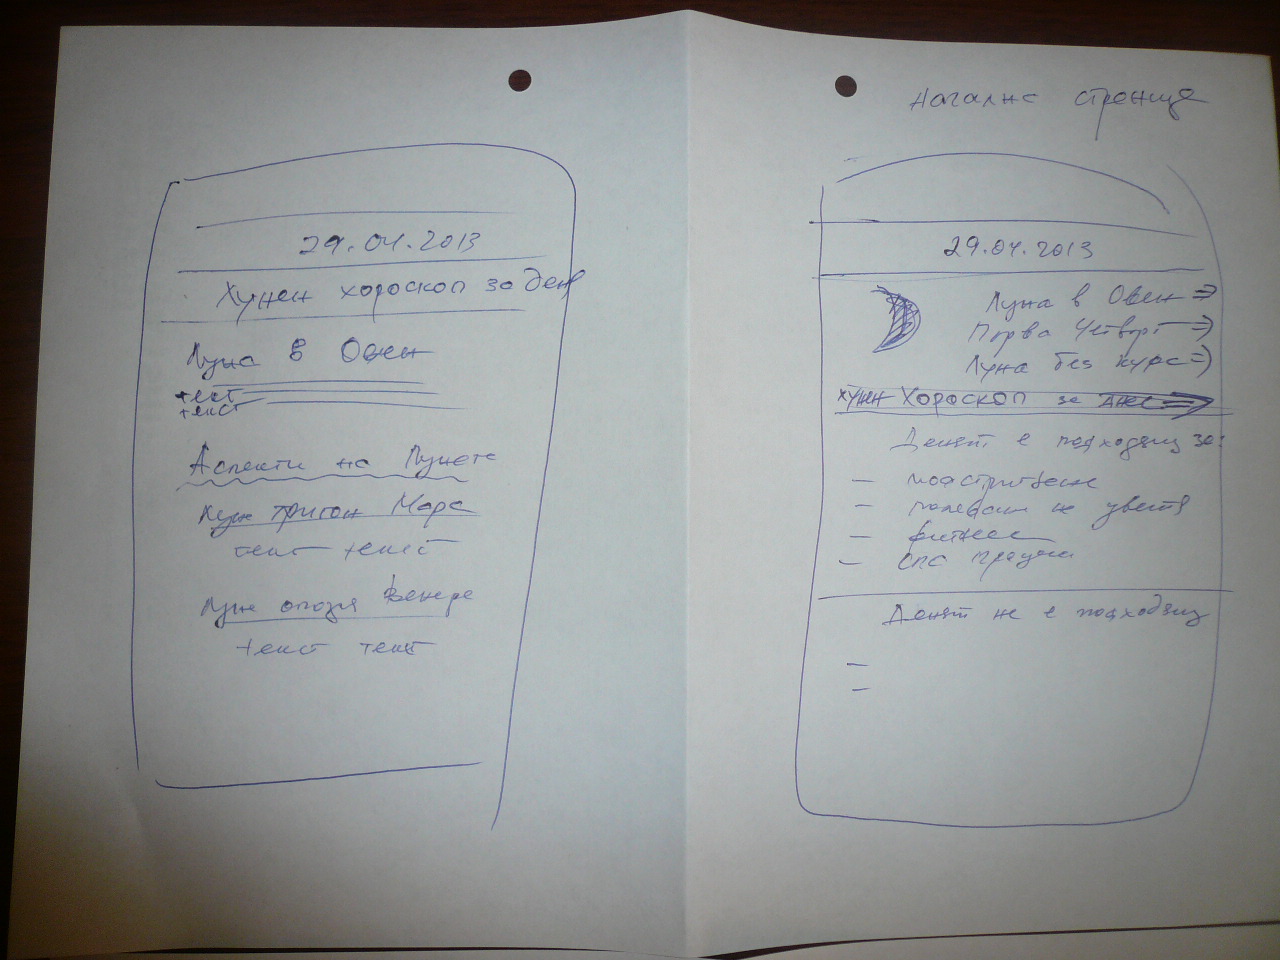 29.04.2013
Лунен хороскоп за ден
Луна в Овен
текст
текст
Аспекти на Луната
Луна тригон Марс
текст текст
Луна опозия Венера
текст текст
Начална страница
29.04.2013
Луна в Овен ⇒
Първа Четвърт ⇒
Луна без курс ⇒
Лунен Хороскоп за днес ⇒
Денят е подходящ за:
- подстригване
- поливане на цветя
- фитнес
- спа
Денят не е подходящ
-
-